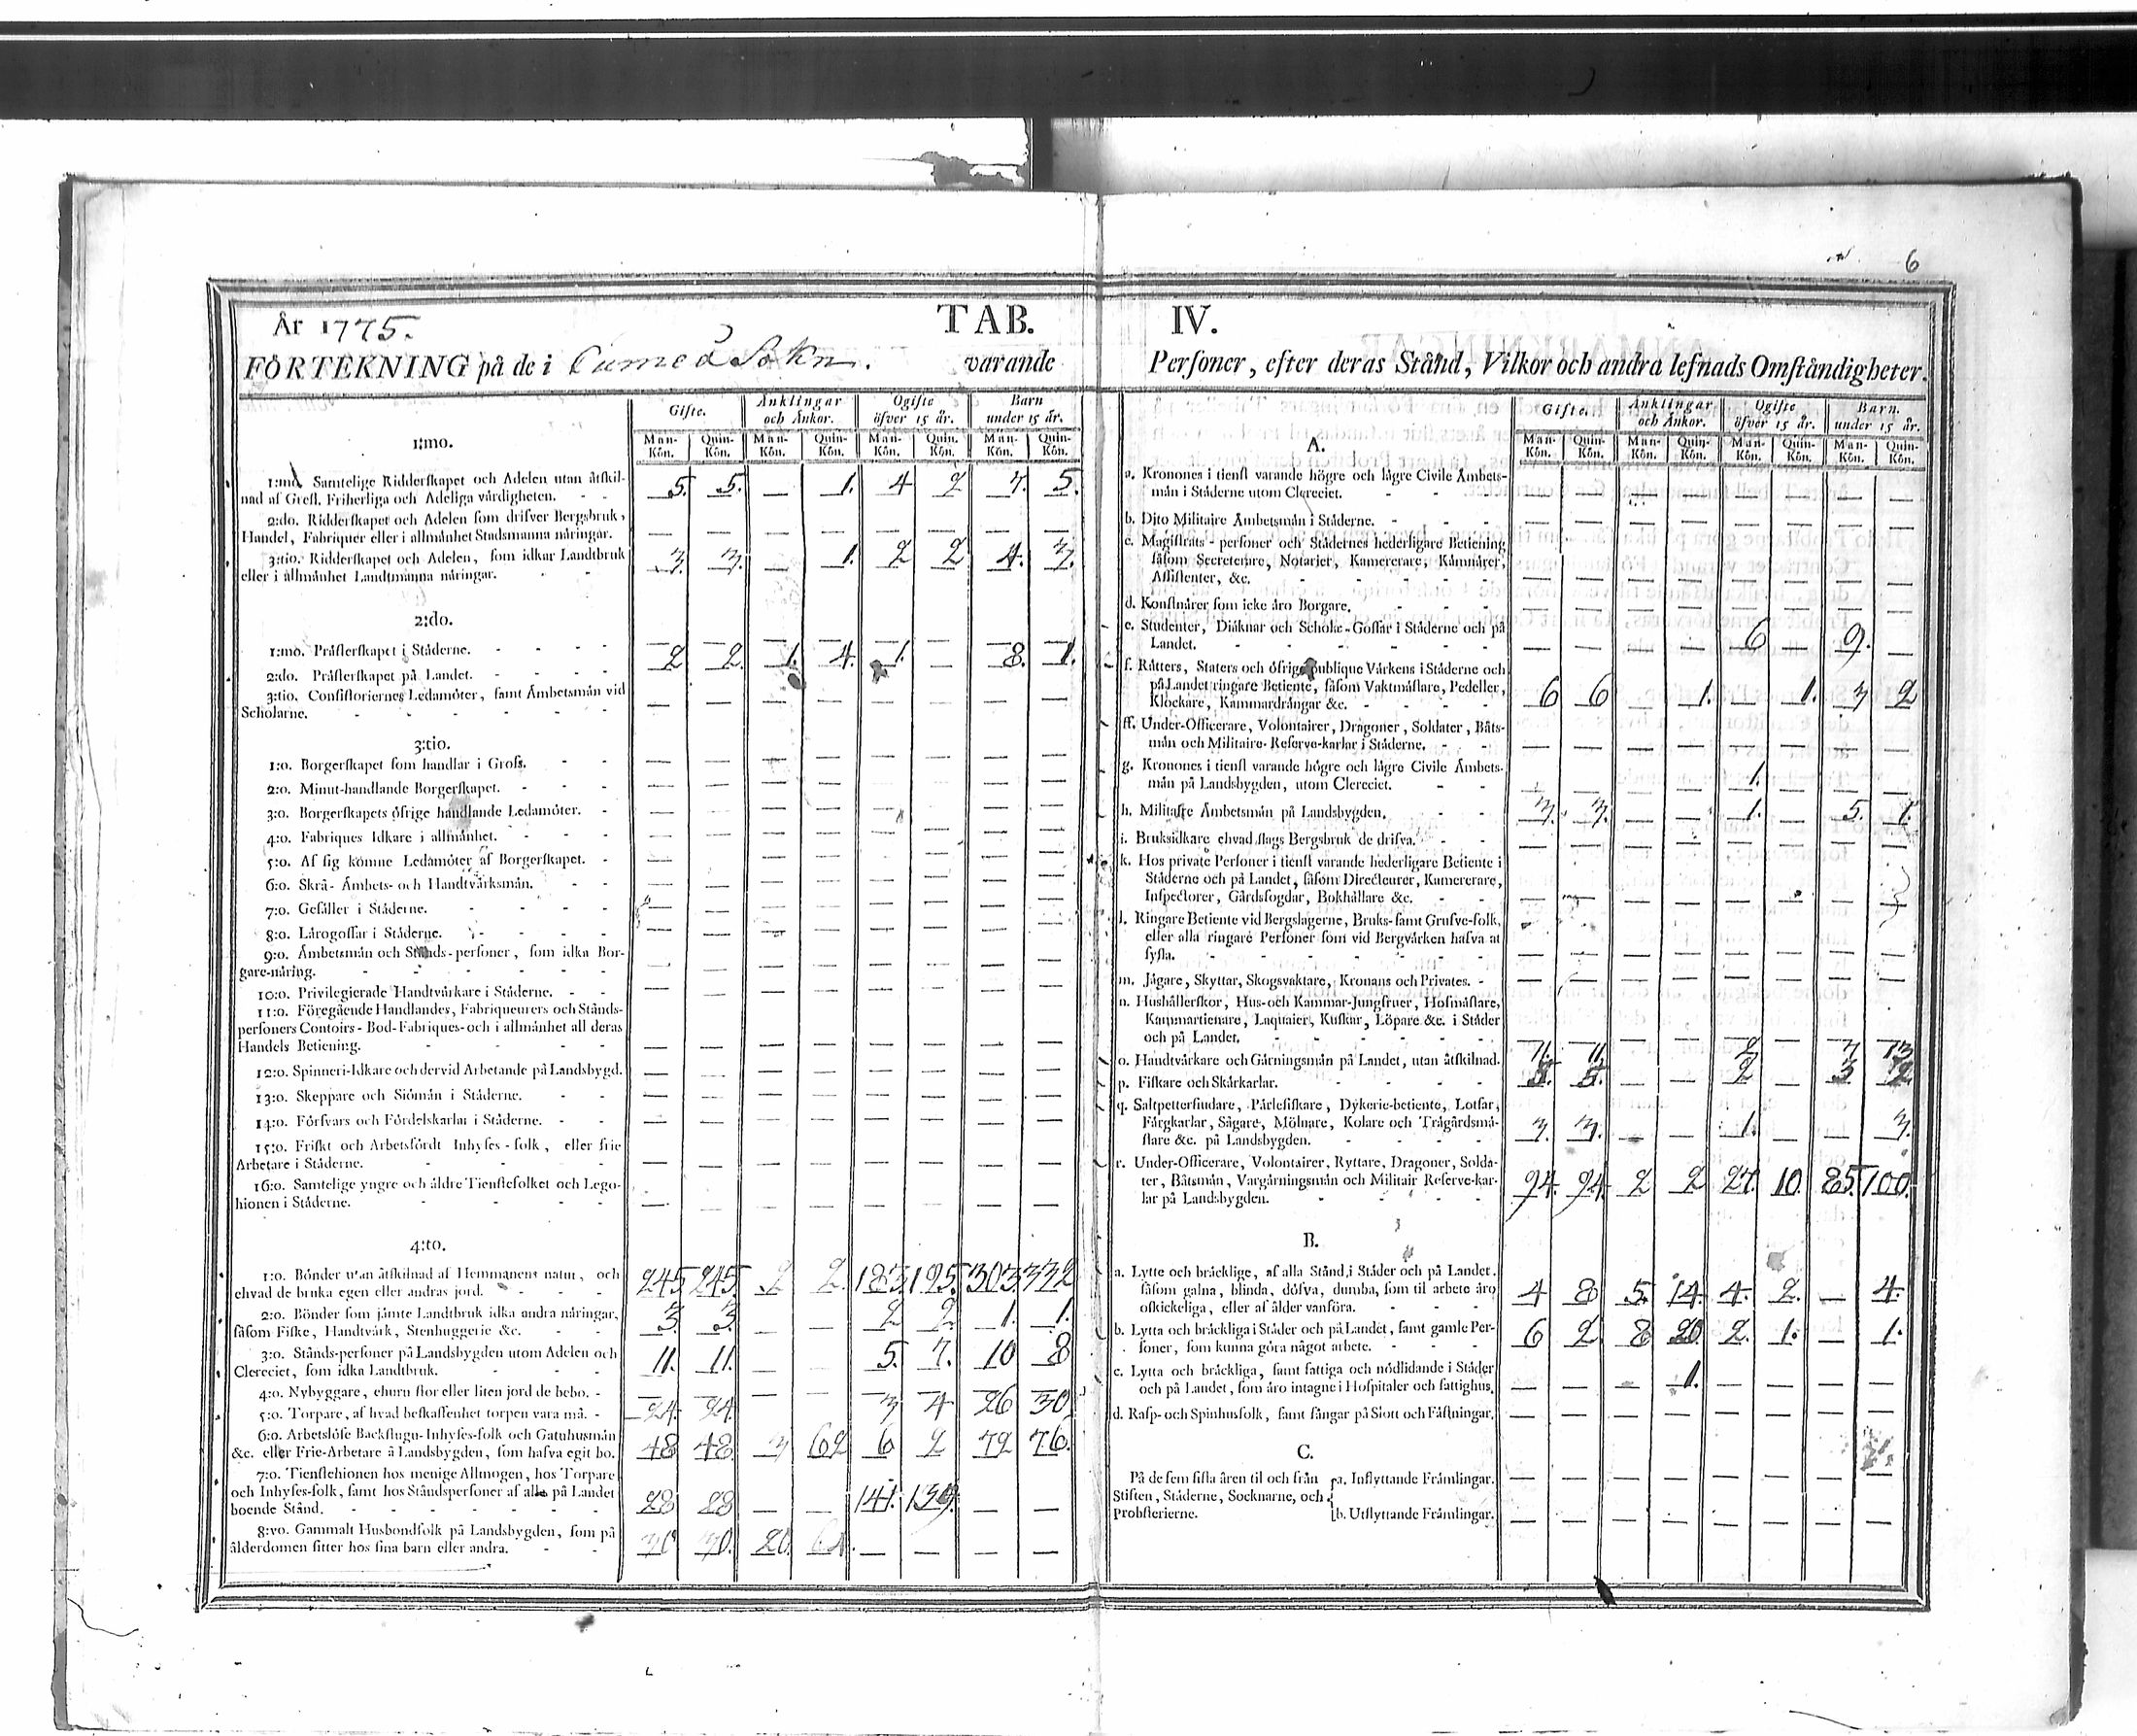 6
År 1775.
TAB.
FÖRTEKNING på de i Cumeå Sokn. varande
Gifte.
Änklingar och Änkor.
Ogifte öfver 15 år.
Barn under 15 år.
Man-Kön. Quin-Kön. Man-Kön. Quin-Kön. Man-Kön. Quin. Kön. Man-Kön. Quin-Kön.
1:mo.
1:mo. Samtelige Ridderskapet och Adelen utan åtskil-
nad af Grefl. Friherliga och Adeliga värdigheten. - - 5. 5. — 1. 4 2 7. 5.
2:do. Ridderskapet och Adelen som drifver Bergsbruk,
Handel, Fabriquer eller i allmänhet Stadsmanna näringar. — — — — — — — —
3:tio. Ridderskapet och Adelen, som idkar Landtbruk
eller i allmänhet Landtmanna näringar. - - 3. 3. — 1. 2 2 4. 3.
2:do.
1:mo. Prästerskapet i Städerne. - - - - — — — — — — — —
2:do. Prästerskapet på Landet. - - - - 2 2. 1. 4. 1. — 8. 1.
3:tio. Consistoriernes Ledamöter, samt Ämbetsmän vid
Scholarne. - - - - — — — — — — — —
3:tio.
1:o. Borgerskapet som handlar i Gross. - - — — — — — — — —
2:o. Minut-handlande Borgerskapet. - - - — — — — — — — —
3:o. Borgerskapets öfrige handlande Ledamöter. - — — — — — — — —
4:o. Fabriques Idkare i allmänhet. - - - — — — — — — — —
5:o. Af sig komne Ledamöter af Borgerskapet. - — — — — — — — —
6:o. Skrå- Ämbets- och Handtvärksmän. - - — — — — — — — —
7:o. Gesäller i Städerne. - - - - — — — — — — — —
8:o. Lärogossar i Städerne. - - - - — — — — — — — —
9:o. Ämbetsmän och Stånds-personer, som idka Bor-
gare-näring. - - - - - — — — — — — — —
10:o. Privilegierade Handtvärkare i Städerne. - - — — — — — — — —
11:o. Föregående Handlandes, Fabriqueurers och Stånds-
personers Contoirs - Bod-Fabriques- och i allmänhet all deras
Handels Betiening. - - - - — — — — — — — —
12:o. Spinneri-Idkare och dervid Arbetande på Landsbygd. — — — — — — — —
13:o. Skeppare och Siömän i Städerne. - - — — — — — — — —
14:o. Försvars och Fördelskarlar i Städerne. - - — — — — — — — —
15:o. Friskt och Arbetsfördt Inhyses - folk, eller frie
Arbetare i Städerne. - - - - — — — — — — — —
16:o. Samtelige yngre och äldre Tienstefolket och Lego-
hionen i Städerne. - - - - — — — — — — — —
4:to.
1:o. Bönder utan åtskilnad af Hemmanens natur, och
ehvad de bruka egen eller andras jord. - - 245 245. 2 2. 183. 195. 303. 372
2:o. Bönder som jämte Landtbruk idka andra näringar,
såsom Fiske, Handtvärk, Stenhuggerie &c. - - 3 3. — — 2 2. 1. 1.
3:o. Stånds-personer på Landsbygden utom Adelen och
Clereciet, som idka Landtbruk. - - - 11. 11. — — 5. 7. 10 8
4:o. Nybyggare, ehuru stor eller liten jord de bebo. - — — — — — — — —
5:o. Torpare, af hvad beskaffenhet torpen vara må. - 24. 24. — — 3 4 26 30
6:o. Arbetslöse Backstugu- Inhyses-folk och Gatuhusmän
&c. eller Frie-Arbetare å Landsbygden, som hafva egit bo. 48 48. 3 62 6 2 72 76.
7:o. Tienstehionen hos menige Allmogen, hos Torpare
och Inhyses-folk, samt hos Ståndspersoner af alla på Landet
boende Stånd. - - - - 28 28 — — 141. 139. — —
8:vo. Gammalt Husbondfolk på Landsbygden, som på
ålderdomen sitter hos sina barn eller andra. - - 70 70. 20. — — — —
IV.
Personer, efter deras Stånd, Vilkor och andra lefnads Omständigheter.
Gifte.
Änklingar och Änkor.
Ogifte öfver 15 år.
Barn. under 15 år.
Man-Kön. Quin-Kön. Man-Kön. Quin-Kön. Man-Kön. Quin-Kön. Man-Kön. Quin-Kön.
A.
a. Kronones i tienst varande högre och lägre Civile Ämbets-
män i Städerne utom Clereciet. - - - — — — — — — — —
b. Dito Militaire Ämbetsmän i Städerne. - - - — — — — — — — —
c. Magistrats - personer och Städernes hederligare Betiening
såsom Secreterare, Notarier, Kamererare, Kämnärer,
Assistenter, &c. - - - - — — — — — — — —
d. Konstnärer som icke äro Borgare. - - - — — — — — — — —
e. Studenter, Diäknar och Schole-Gossar i Städerne och på
Landet. - - - - - — — — — 6 — 9. —
f. Rätters, Staters och öfrige publique Värkens i Städerne och
på Landet ringare Betiente, såsom Vaktmästare, Pedeller,
Klockare, Kammardrängar &c. - - - 6 6 — 1. — 1. 3 2
ff. Under-Officerare, Volontairer, Dragoner, Soldater, Båts-
män och Militaire-Reserve-karlar i Städerne. - - — — — — — — — —
g. Kronones i tienst varande högre och lägre Civile Ämbets-
män på Landsbygden, utom Clereciet. - - — — — — 1. — — —
h. Militaire Ämbetsmän på Landsbygden. - - 3. 3. — — 1. — 5. 1.
i. Bruksidkare ehvad slags Bergsbruk de drifva. - - — — — — — — — —
k. Hos private Personer i tienst varande hederligare Betiente i
Städerne och på Landet, såsom Directeurer, Kamererare,
Inspectorer, Gårdsfogdar, Bokhållare &c. - - — — — — — — — —
l. Ringare Betiente vid Bergslagerne, Bruks- samt Grufve-folk,
eller alla ringare Personer som vid Bergvärken hafva at
sysla. - - - - — — — — — — — —
m. Jägare, Skyttar, Skogsvaktare, Kronans och Privates. - — — — — — — — —
n. Hushållerskor, Hus-och Kammar-Jungfruer, Hofmästare,
Kammartienare, Laquaier, Kuskar, Löpare &c. i Städer
och på Landet. - - - -
o. Handtvärkare och Gärningsmän på Landet, utan åtskilnad.
p. Fiskare och Skärkarlar. - - - -
q. Saltpettersiudare, Pärlefiskare, Dykerie-betiente, Lotsar,
Färgkarlar, Sågare, Mölnare, Kolare och Trägårdsmä-
stare &c. på Landsbygden. - - - 3. 3. — — 1. — — 3.
r. Under-Officerare, Volontairer, Ryttare, Dragoner, Solda-
ter, Båtsmän, Vargärningsmän och Militair Reserve-kar-
lar på Landsbygden. - - - 94. 94. 2 2 27. 10. 85. 100.
B.
a. Lytte och bräcklige, af alla Stånd, i Städer och på Landet.
såsom galna, blinda, döfva, dumba, som til arbete äro
oskickeliga, eller af ålder vanföra. - - - 4 8 5. 14. 4. 2. — 4.
b. Lytta och bräckliga i Städer och på Landet, samt gamle Per-
soner, som kunna göra något arbete. - - - 6 2. 8 20. 2. 1. — 1.
c. Lytta och bräckliga, samt fattiga och nödlidande i Städer
och på Landet, som äro intagne i Hospitaler och fattighus. — — — 1. — — — —
d. Rasp- och Spinhusfolk, samt fångar på Slott och Fästningar. — — — — — — — —
C.
På de fem sista åren til och från
Stiften, Städerne, Socknarne, och
Probsterierne.
a. Inflyttande Främlingar. — — — — — — — —
b. Utflyttande Främlingar. — — — — — — — —